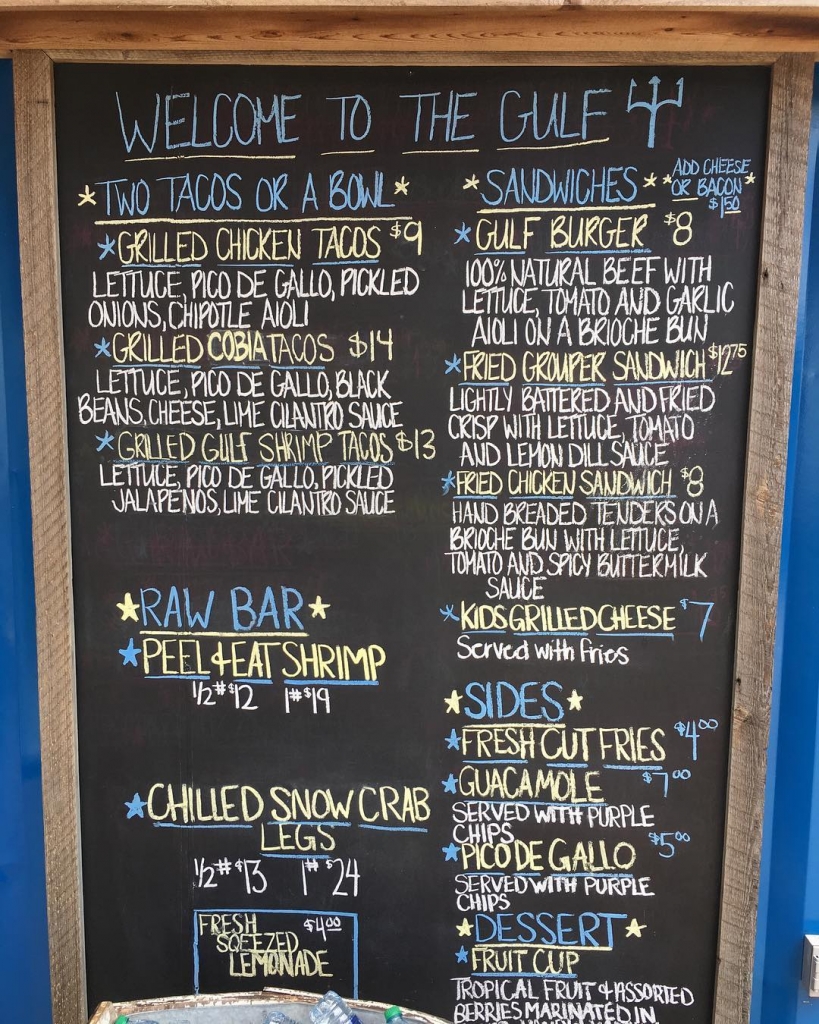 WELCOME TO THE GULF
TWO TACOS OR A BOWL
GRILLED CHICKEN TACOS $9
LETTUCE, PICO DE GALLO, PICKLED
ONIONS, CHIPOTLE AIOLI
GRILLED COBIA TACOS $14
LETTUCE, PICO DE GALLO, BLACK
BEANS, CHEESE, LIME CILANTRO SAUCE
GRILLED GULF SHRIMP TACOS $13
LETTUCE, PICO DE GALLO, PICKLED
JALAPENOS, LIME CILANTRO SAUCE
RAW BAR
PEEL & EAT SHRIMP
1/2# $12 1# $19
CHILLED SNOW CRAB
LEGS
1/2# $13 1# $24
FRESH $4.00
SQEEZED
LEMONADE
SANDWICHES
ADD CHEESE
OR BACON
$1.50
GULF BURGER $8
100% NATURAL BEEF WITH
LETTUCE, TOMATO AND GARLIC
AIOLI ON A BRIOCHE BUN
FRIED GROUPER SANDWICH $12.75
LIGHTLY BATTERED AND FRIED
CRISP WITH LETTUCE, TOMATO
AND LEMON DILL SAUCE
FRIED CHICKEN SANDWICH $8
HAND BREADED TENDERS ON A
BRIOCHE BUN WITH LETTUCE,
TOMATO AND SPICY BUTTERMILK
SAUCE
KIDS GRILLED CHEESE $7
Served with fries
SIDES
FRESH CUT FRIES $4.00
GUACAMOLE $7.00
SERVED WITH PURPLE
CHIPS
PICO DE GALLO $5.00
SERVED WITH PURPLE
CHIPS
DESSERT
FRUIT CUP
TROPICAL FRUIT & ASSORTED
BERRIES MARINATED IN